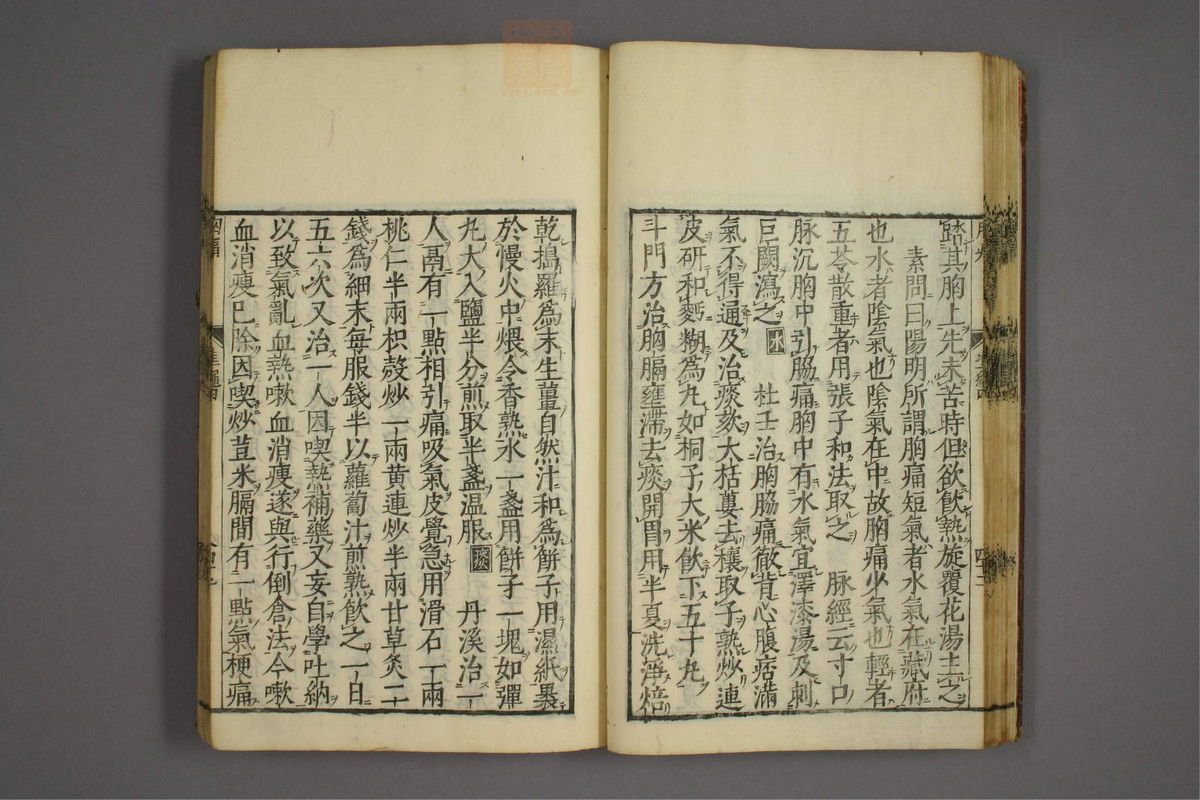 蹈其胸上先未苦時但欲飲熱旋覆花湯主之
素問曰陽明所謂胸痛短氣者水氣在藏府
也水者陰氣也陰氣在中故胸痛少氣也輕者
五苓散重者用張子和法取之　脉經云寸口
脉沉胸中引脇痛胸中有水氣宜澤漆湯及刺
巨闕瀉之　水　杜壬治胸脇痛徹背心腹痞滿
氣不得通及治痰欬大栝蔞去穰取子熟炒連
皮研和麪糊爲丸如桐子大米飲下五十丸
斗門方治胸膈壅滯去痰開胃用半夏洗淨焙
乾搗羅爲末生薑自然汁和爲餅子用濕紙裹
於慢火中煨令香熟水一盞用餅子一塊如彈
丸大入鹽半分煎取半盞温服　痰　丹溪治一
人鬲有一點相引痛吸氣皮覺急用滑石一兩
桃仁半兩枳殼炒一兩黄連炒半兩甘草炙二
錢爲細末每服錢半以蘿蔔汁煎熟飲之一日
五六次又治一人因喫熱補藥又妄自學吐納
以致氣亂血熱嗽血消瘦遂與行倒倉法今嗽
血消瘦已除因喫炒荳米膈間有一點氣梗痛